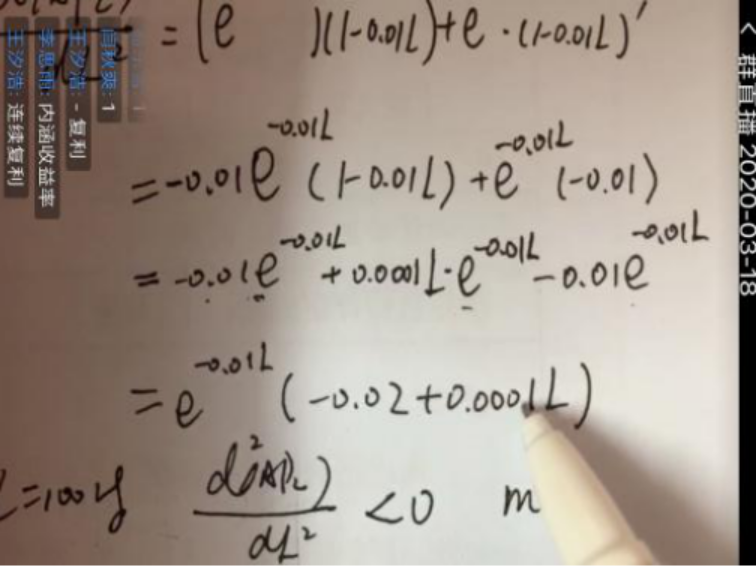 = (e )(1-0.01L)+e·(1-0.01L)′
= -0.01e^{-0.01L} (1-0.01L) + e^{-0.01L} (-0.01)
= -0.01e^{-0.01L} + 0.0001L·e^{-0.01L} - 0.01e^{-0.01L}
= e^{-0.01L} (-0.02+0.0001L)
L=100时 d²(AP_L)/dL² <0 m
闫秋爽: 1
王汐浩: - 复利
李思雨: 内涵收益率
王汐浩: 连续复利
< 群直播 2020-03-18